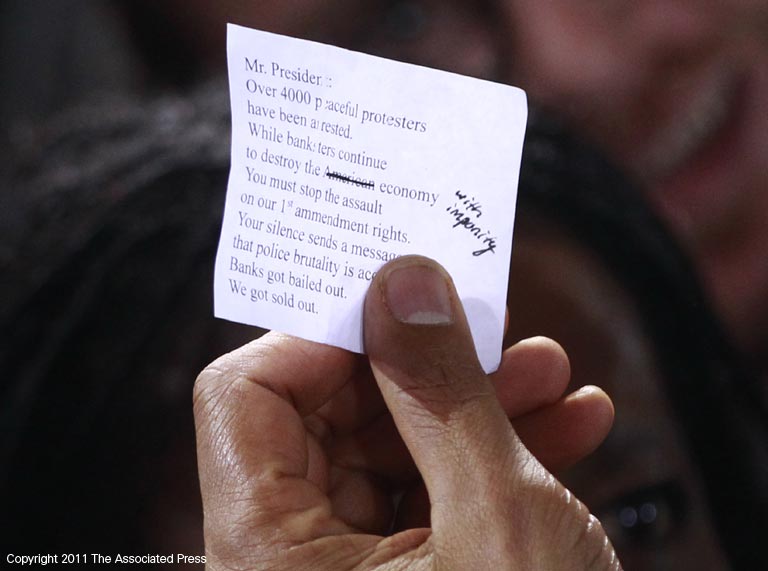 Mr. President:
Over 4000 peaceful protesters
have been arrested.
While banksters continue
to destroy the American economy
with
impunity
You must stop the assault
on our 1st ammendment rights.
Your silence sends a message
that police brutality is acc
Banks got bailed out.
We got sold out.
Copyright 2011 The Associated Press